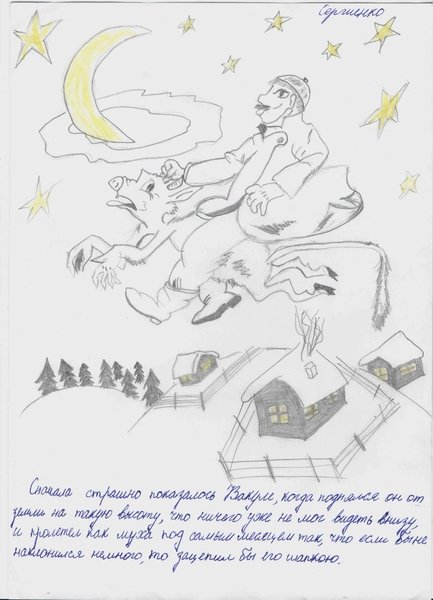 Сергиенко
Сначала страшно показалось Вакуле, когда поднялся он от
земли на такую высоту, что ничего уже не мог видеть внизу,
и пролетел как муха под самым месяцем так, что если бы не
наклонился немного, то зацепил бы его шапкою.